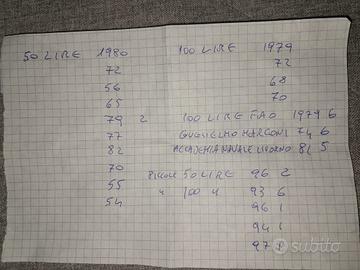 50 LIRE 1980
72
56
65
79 2
77
82
70
55
54
100 LIRE 1979
72
68
70
100 LIRE FAO 1979 6
GUGLIELMO MARCONI 74 6
ACCADEMIA NAVALE LIVORNO 81 5
PICCOLE 50 LIRE 96 2
" 100 " 93 6
96 1
94 1
97 1
subito